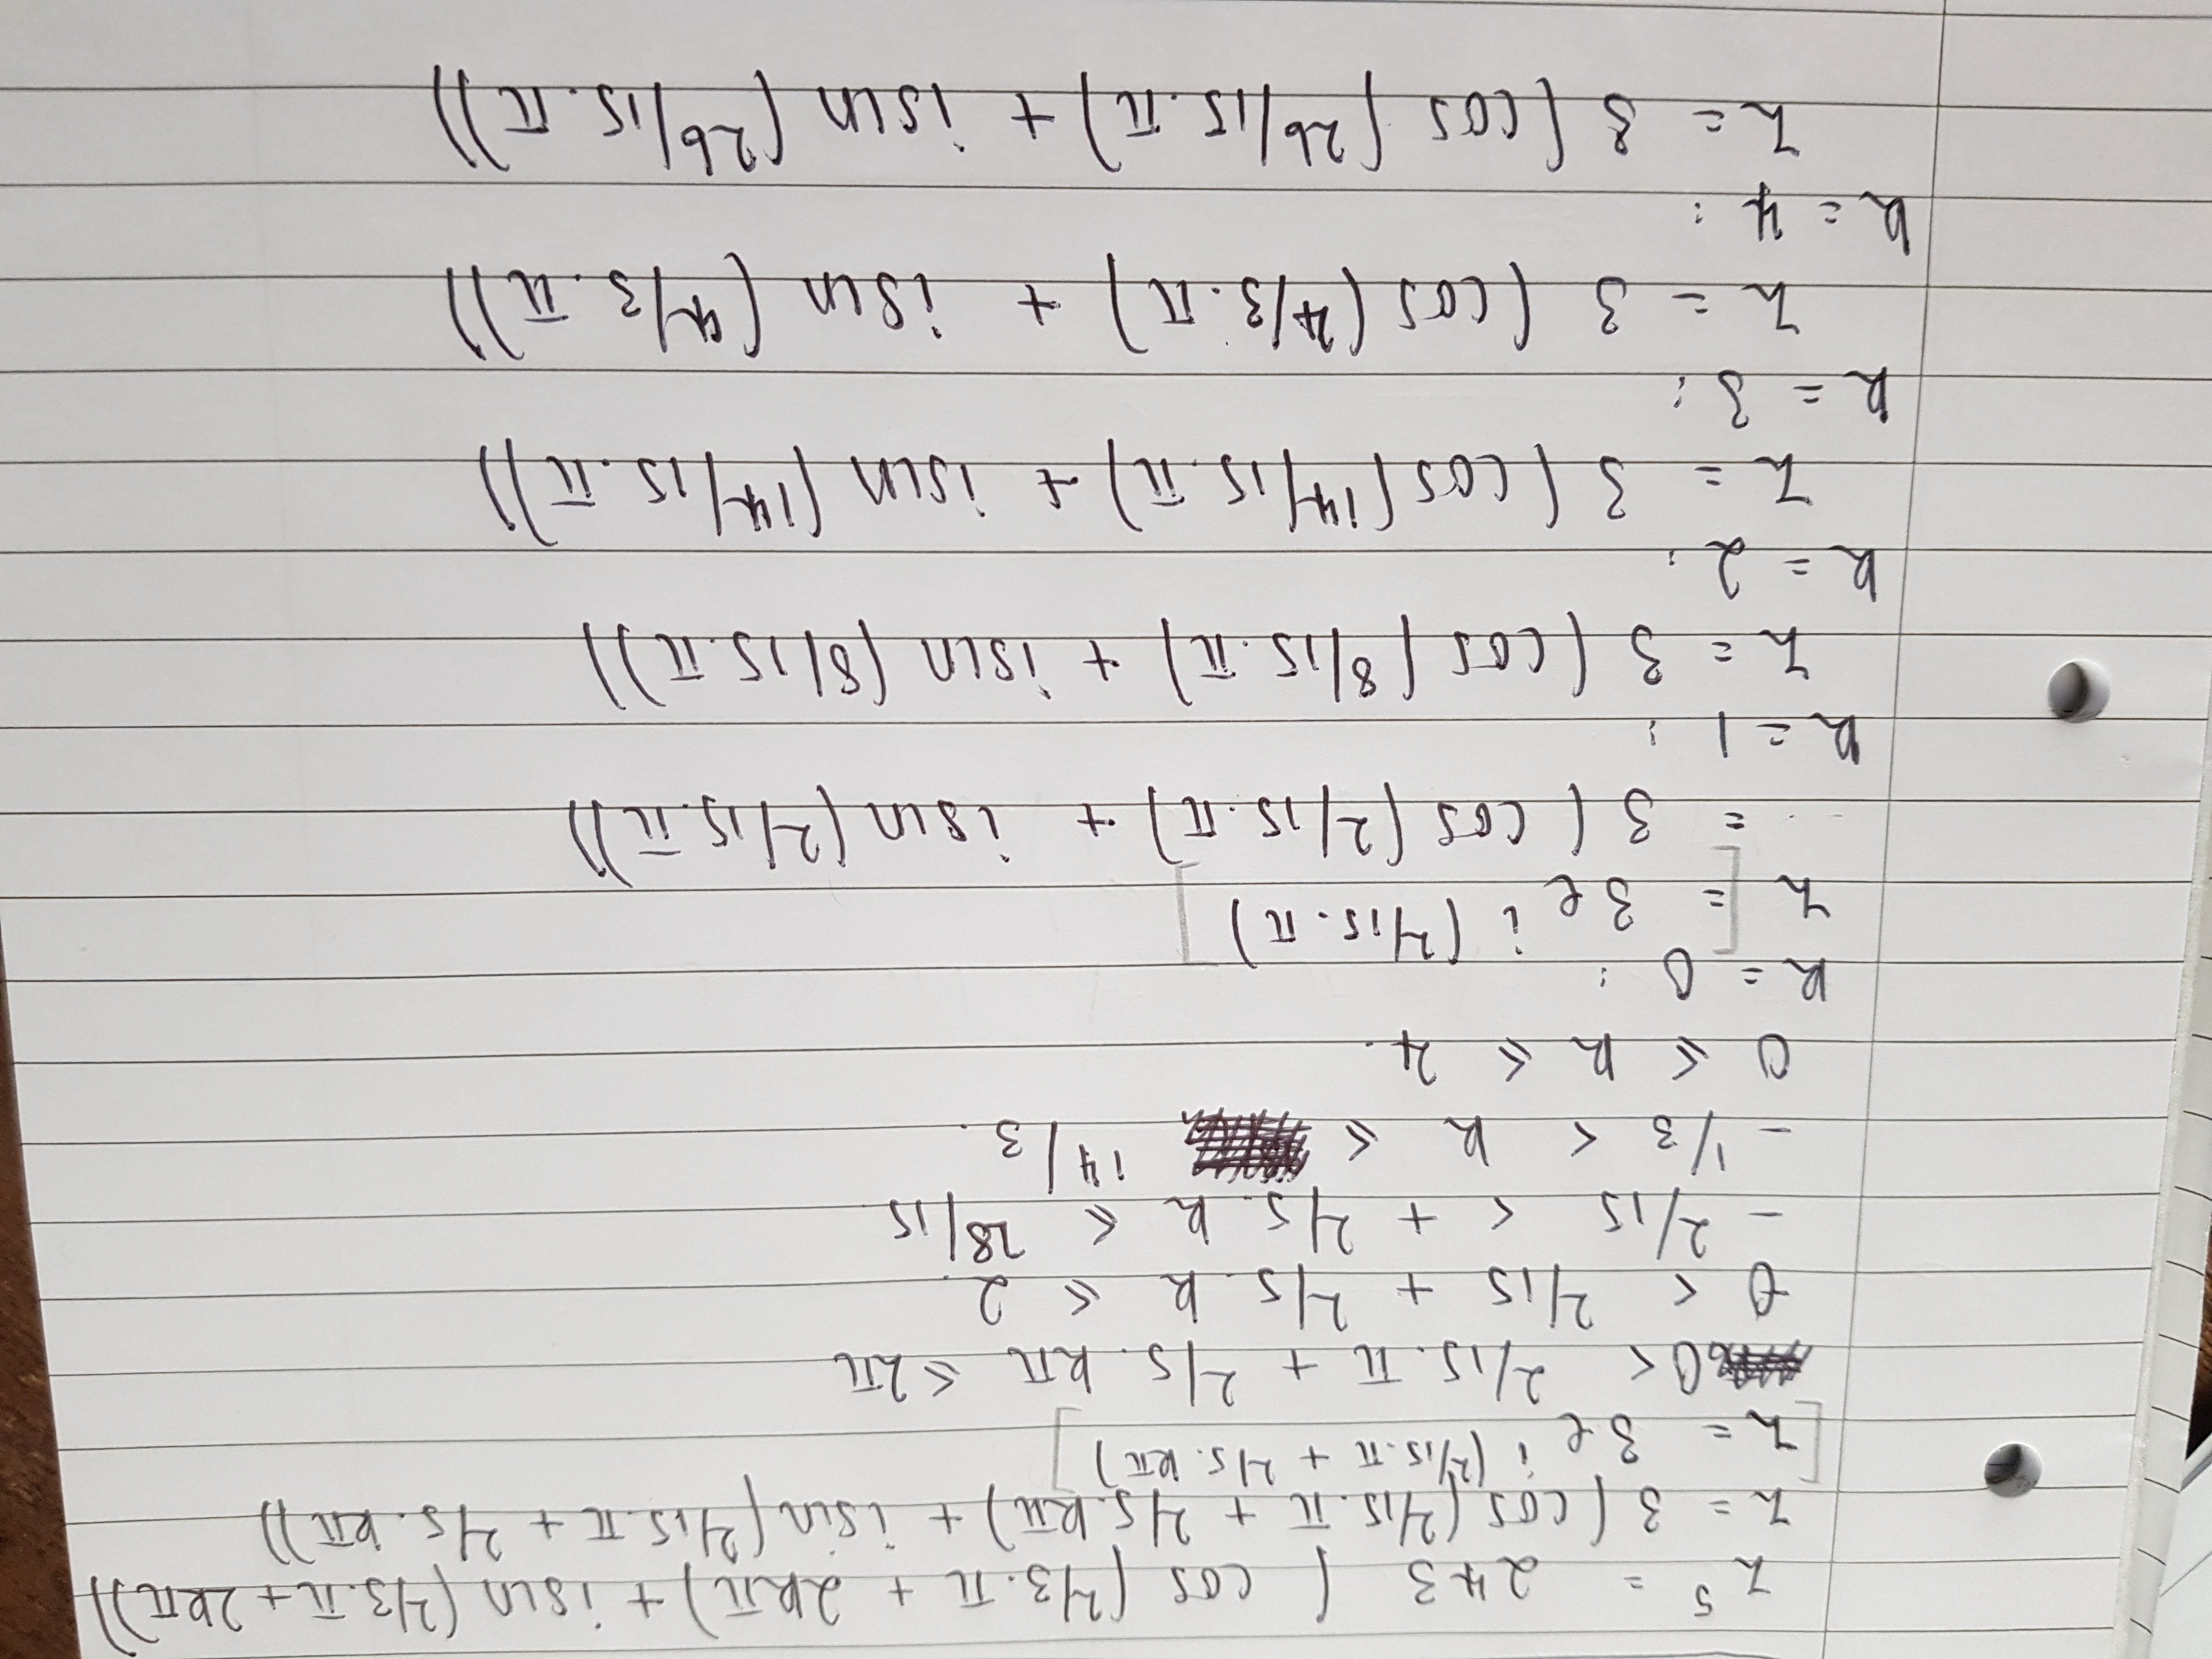 z⁵ = 243 ( cos (2/3.π + 2kπ) + isin (2/3.π + 2kπ))
z = 3 (cos (2/15.π + 2/5.kπ) + isin (2/15.π + 2/5.kπ))
[z = 3e^i(2/15.π + 2/5.kπ)]
0 < 2/15.π + 2/5.kπ ≤ 2π
0 < 2/15 + 2/5.k ≤ 2.
- 2/15 < + 2/5.k ≤ 28/15
- 1/3 < k ≤ 14/3.
0 ≤ k ≤ 4.
k = 0:
z [= 3e^i(2/15.π)]
= 3 (cos (2/15.π) + isin (2/15.π))
k = 1:
z = 3 (cos (8/15.π) + isin (8/15.π))
k = 2:
z = 3 (cos (14/15.π) + isin (14/15.π))
k = 3:
z = 3 (cos (4/3.π) + isin (4/3.π))
k = 4:
z = 3 (cos (26/15.π) + isin (26/15.π))